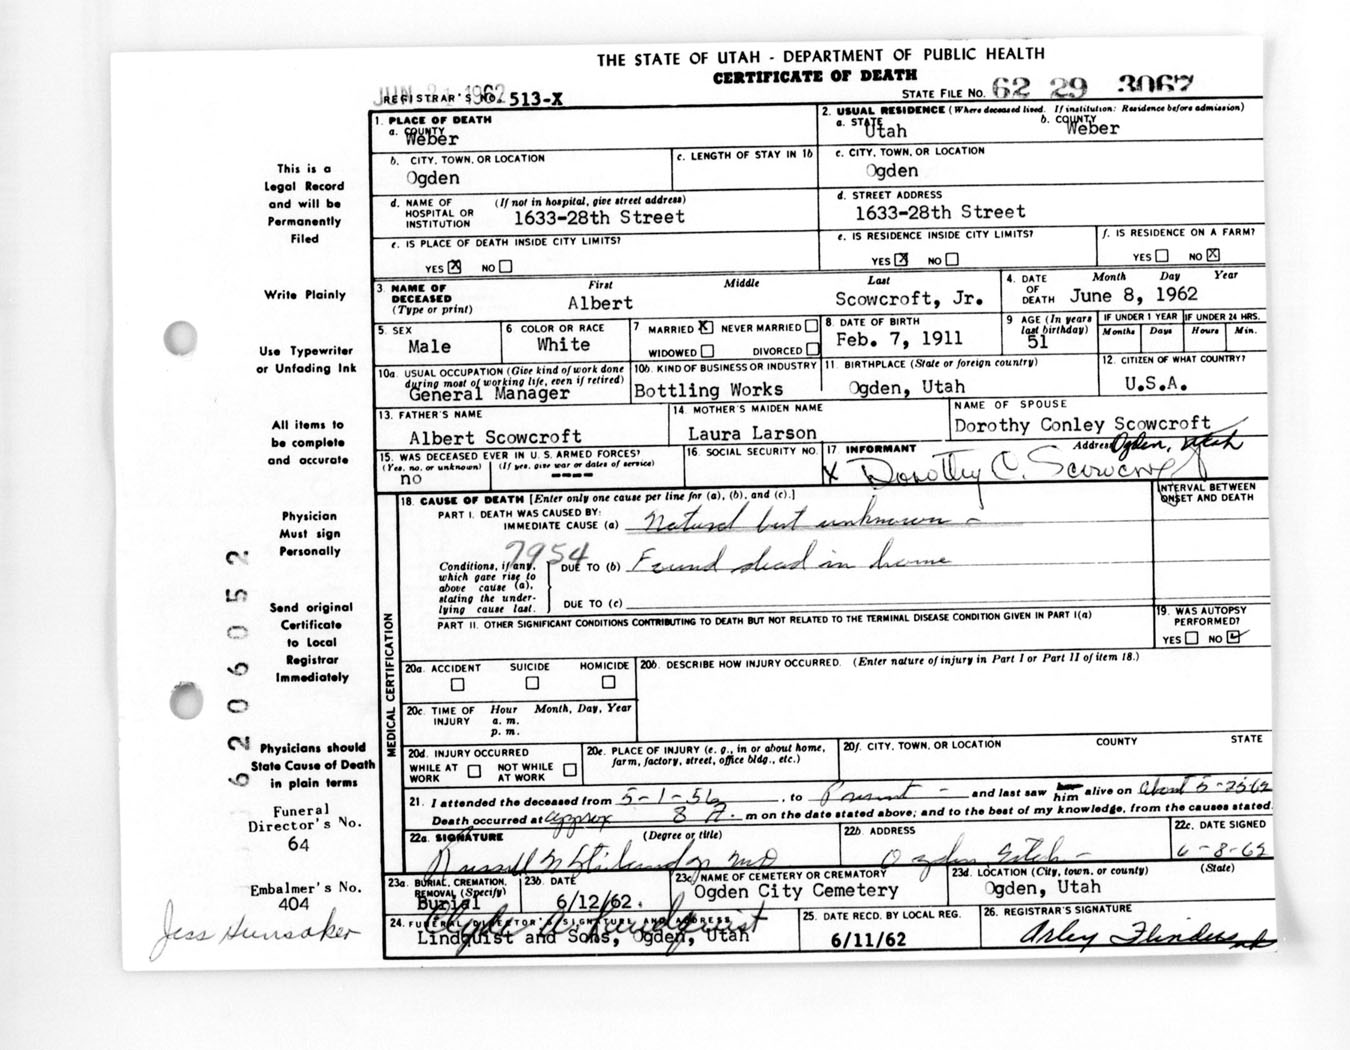 THE STATE OF UTAH - DEPARTMENT OF PUBLIC HEALTH
CERTIFICATE OF DEATH
REGISTRAR'S NO. 513-X
STATE FILE NO. 62 29 3067
1. PLACE OF DEATH
a. COUNTY
Weber
2. USUAL RESIDENCE (Where deceased lived. If institution: Residence before admission)
a. STATE Utah b. COUNTY Weber
b. CITY, TOWN, OR LOCATION
Ogden
c. LENGTH OF STAY IN 1b
c. CITY, TOWN, OR LOCATION
Ogden
d. NAME OF HOSPITAL OR INSTITUTION (If not in hospital, give street address)
1633-28th Street
d. STREET ADDRESS
1633-28th Street
e. IS PLACE OF DEATH INSIDE CITY LIMITS?
YES X NO
e. IS RESIDENCE INSIDE CITY LIMITS?
YES X NO
f. IS RESIDENCE ON A FARM?
YES NO X
3. NAME OF DECEASED (Type or print)
First Middle Last
Albert Scowcroft, Jr.
4. DATE OF DEATH Month Day Year
June 8, 1962
5. SEX
Male
6 COLOR OR RACE
White
7 MARRIED X NEVER MARRIED
WIDOWED DIVORCED
8 DATE OF BIRTH
Feb. 7, 1911
9 AGE (In years last birthday)
51
IF UNDER 1 YEAR
Months Days
IF UNDER 24 HRS.
Hours Min.
10a. USUAL OCCUPATION (Give kind of work done during most of working life, even if retired)
General Manager
10b. KIND OF BUSINESS OR INDUSTRY
Bottling Works
11. BIRTHPLACE (State or foreign country)
Ogden, Utah
12. CITIZEN OF WHAT COUNTRY?
U.S.A.
13. FATHER'S NAME
Albert Scowcroft
14. MOTHER'S MAIDEN NAME
Laura Larson
NAME OF SPOUSE
Dorothy Conley Scowcroft
15. WAS DECEASED EVER IN U.S. ARMED FORCES?
(Yes, no, or unknown) (If yes, give war or dates of service)
no ----
16. SOCIAL SECURITY NO.
17. INFORMANT Address Ogden, Utah
X Dorothy C. Scowcroft
MEDICAL CERTIFICATION
18. CAUSE OF DEATH [Enter only one cause per line for (a), (b), and (c).]
INTERVAL BETWEEN ONSET AND DEATH
PART I. DEATH WAS CAUSED BY:
IMMEDIATE CAUSE (a) Natural but unknown -
7954
Conditions, if any, which gave rise to above cause (a), stating the underlying cause last.
DUE TO (b) Found dead in home
DUE TO (c)
PART II. OTHER SIGNIFICANT CONDITIONS CONTRIBUTING TO DEATH BUT NOT RELATED TO THE TERMINAL DISEASE CONDITION GIVEN IN PART I(a)
19. WAS AUTOPSY PERFORMED?
YES NO
20a. ACCIDENT SUICIDE HOMICIDE
20b. DESCRIBE HOW INJURY OCCURRED. (Enter nature of injury in Part I or Part II of item 18.)
20c. TIME OF INJURY Hour Month, Day, Year
a. m.
p. m.
20d. INJURY OCCURRED
WHILE AT WORK NOT WHILE AT WORK
20e. PLACE OF INJURY (e. g., in or about home, farm, factory, street, office bldg., etc.)
20f. CITY, TOWN, OR LOCATION COUNTY STATE
21. I attended the deceased from 5-1-56, to Present - and last saw him alive on about 5-25-62
Death occurred at approx 8 A. m on the date stated above; and to the best of my knowledge, from the causes stated.
22a. SIGNATURE (Degree or title)
Russell MD
22b. ADDRESS
Ogden Utah -
22c. DATE SIGNED
6-8-62
23a. BURIAL, CREMATION, REMOVAL (Specify)
Burial
23b. DATE
6/12/62.
23c. NAME OF CEMETERY OR CREMATORY
Ogden City Cemetery
23d. LOCATION (City, town, or county) (State)
Ogden, Utah
24. FUNERAL DIRECTOR'S SIGNATURE AND ADDRESS
Clyde A. Lindquist
Lindquist and Sons, Ogden, Utah
25. DATE RECD. BY LOCAL REG.
6/11/62
26. REGISTRAR'S SIGNATURE
Arley Flinders
This is a
Legal Record
and will be
Permanently
Filed
Write Plainly
Use Typewriter
or Unfading Ink
All items to
be complete
and accurate
Physician
Must sign
Personally
Send original
Certificate
to Local
Registrar
Immediately
Physicians should
State Cause of Death
in plain terms
Funeral
Director's No.
64
Embalmer's No.
404
Jess Hunsaker
6206052